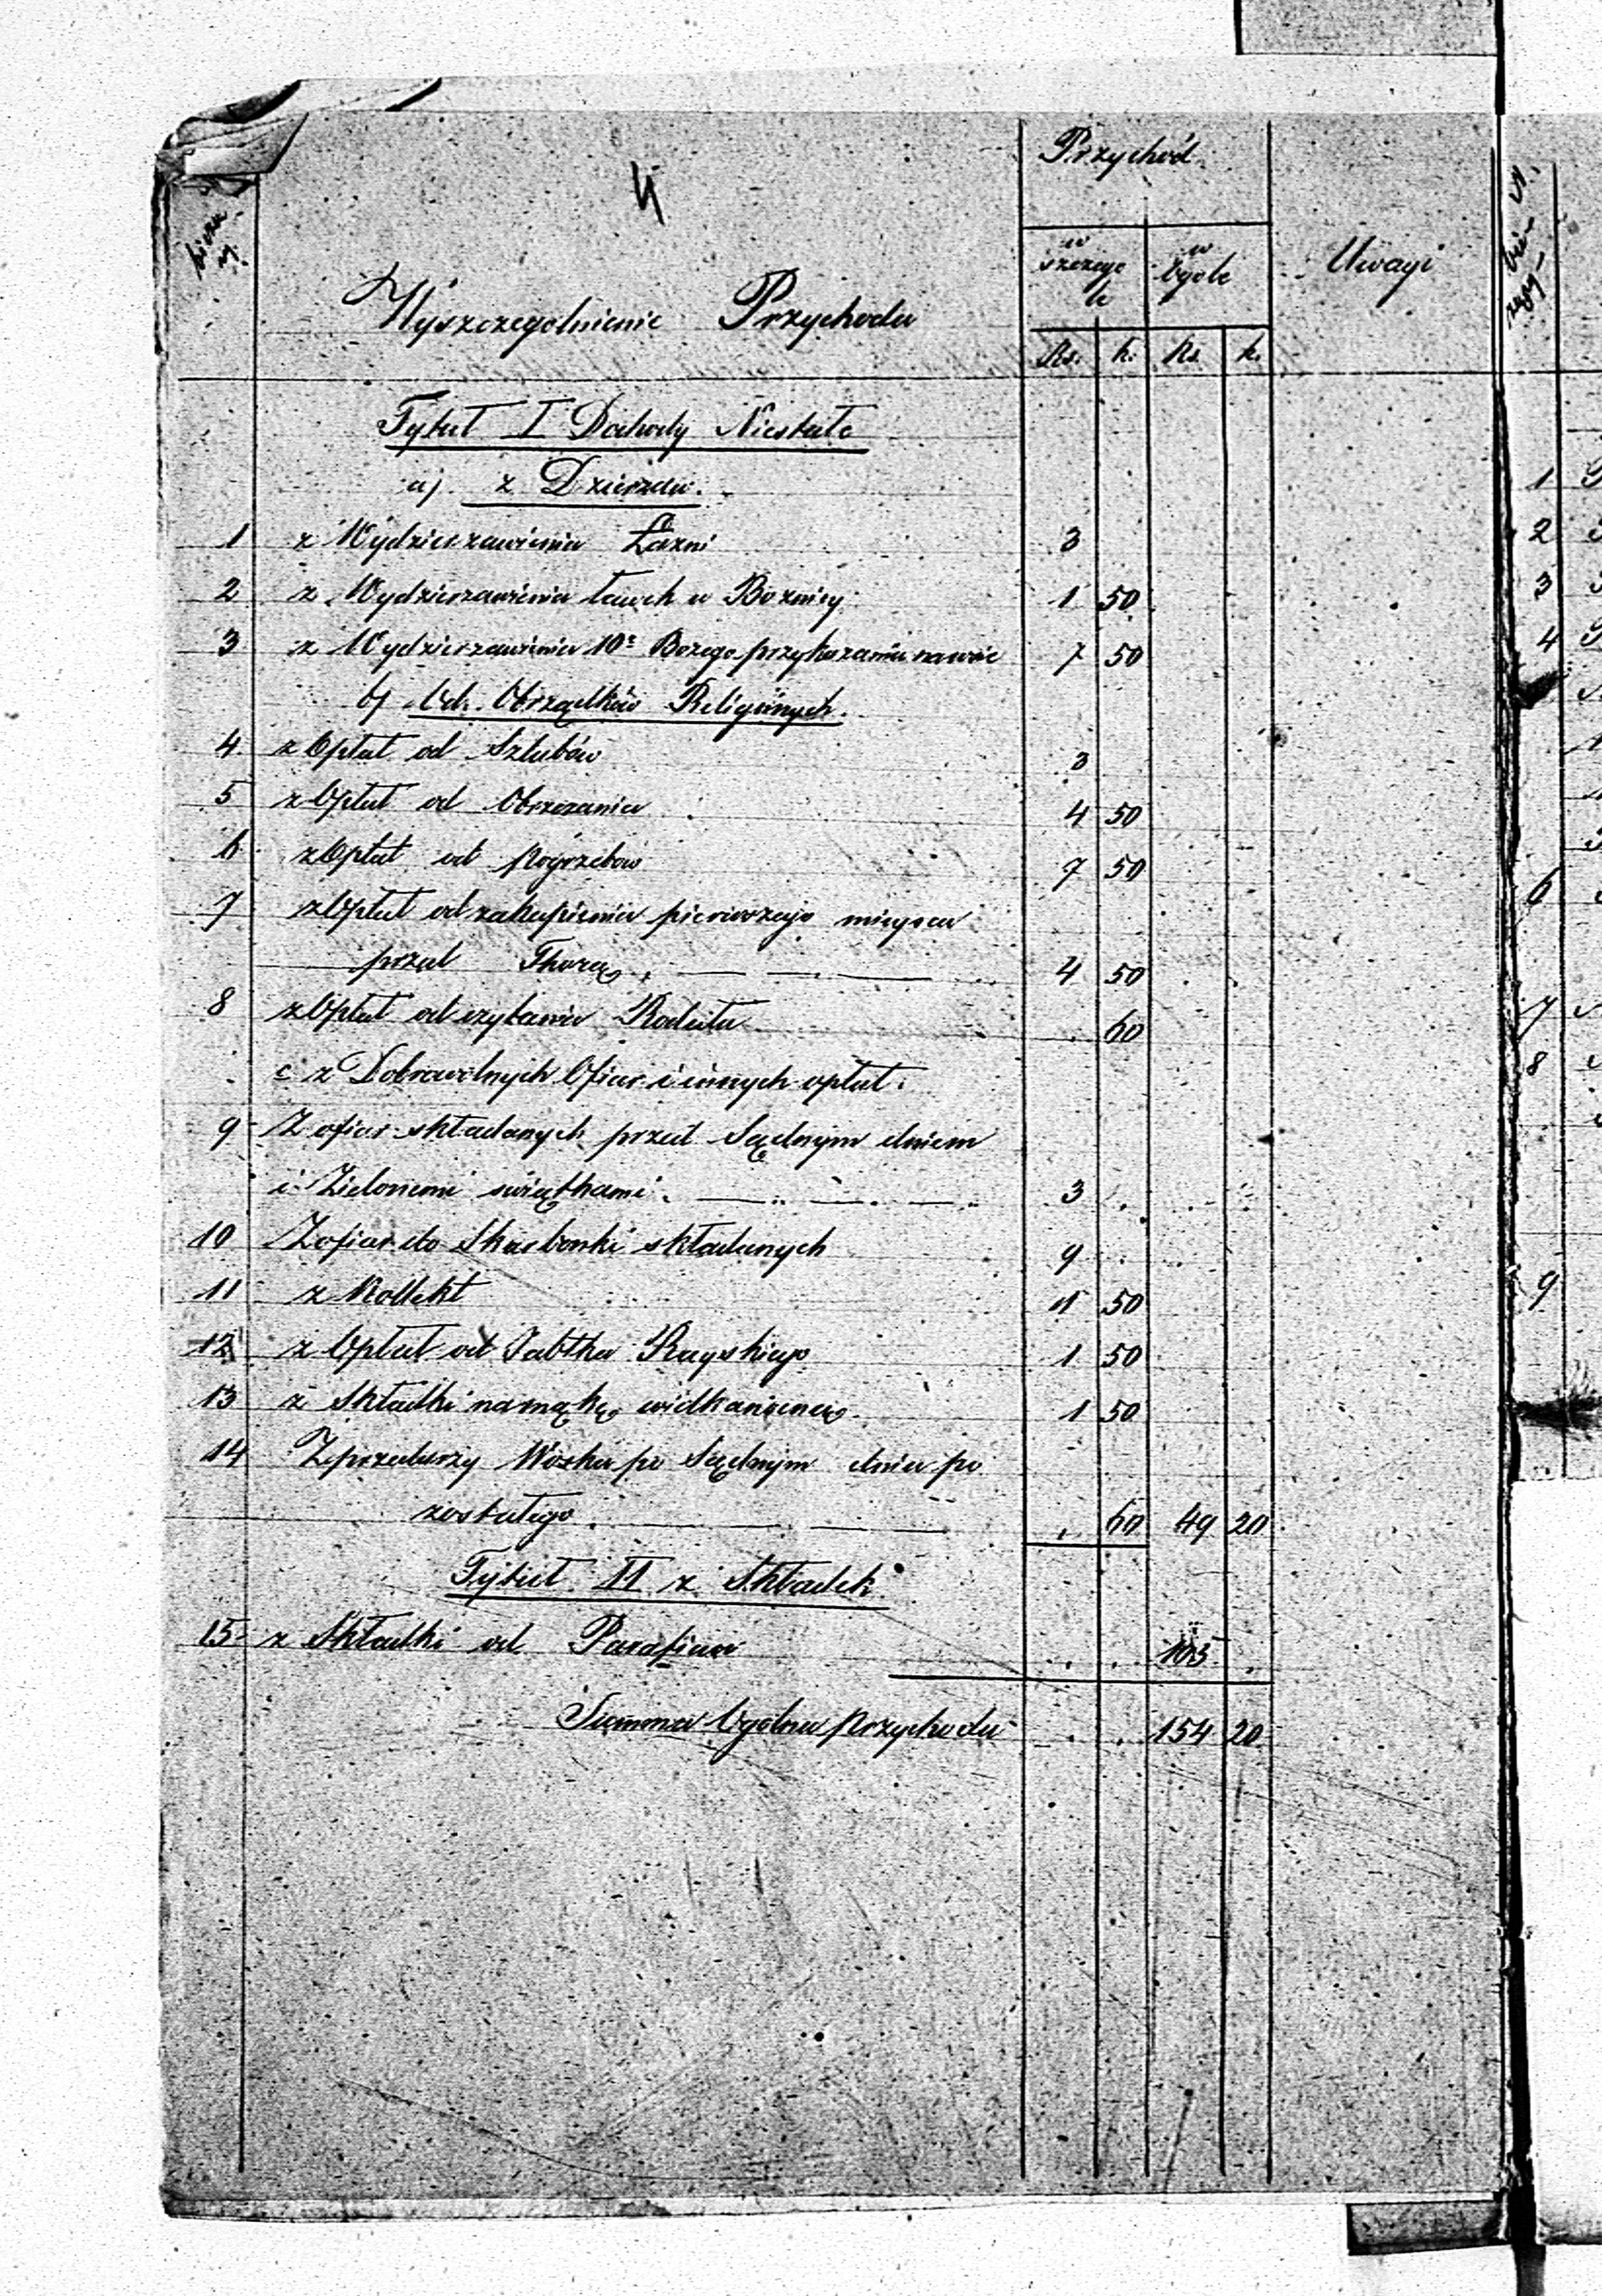 4
Przychód
bieżą-
cy.
Wyszczególnienie Przychodu
w szczegó le
w Ogóle
Uwagi
Rs. k. Rs. k.
Tytuł I Dochody Niestałe
a) z Dzierżaw.
1 z Wydzierżawienia Łaźni 3
2 z Wydzierżawienia ławek w Bożnicy 1 50
3 z Wydzierżawienia 10º Bożego przykazania 7 50
b) Od Obrządków Religijnych.
4 z Opłat od Szlubów 3
5 z Opłat od Obrzezania 4 50
6 z Opłat od Pogrzebów 7 50
7 z Opłat od zakupienia pierwszego miejsca
przed Thorą . 4 50
8 z Opłat od czytania . 60
c z Dobrowolnych Ofiar i innych opłat.
9 Z ofiar składanych przed Sądnym dniem
i Zielonemi świątkami . 3 .
10 Z ofiar do Skarbonki składanych 9
11 z Kollekt 1 50
12 z Opłat od Jabłka Rayskiego 1 50
13 z Składki na mąkę wielkanocną 1 50
14 Z przedarzy Wosku po Sądnym dniu po
zostałego . . 60 49 20
Tytuł II z Składek
15 z Składki od Parafian . . 105 .
Summa Ogólna Przychodu . . 154 20
1
2
3
4
6
7
8
9